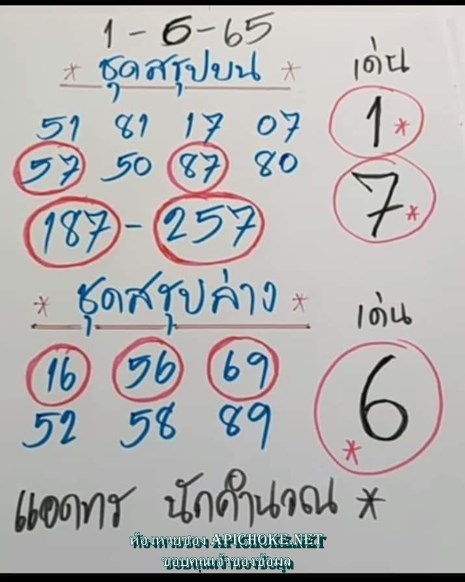 1-6-65
* ชุดสรุปบน * เด่น
51 81 17 07 1*
57 50 87 80 7*
187-257
* ชุดสรุปล่าง * เด่น
16 56 69 6*
52 58 89
แอดทร นักคำนวณ *
ห้องหายของ APICHOKE.NET
ขอบคุณเจ้าของข้อมูล